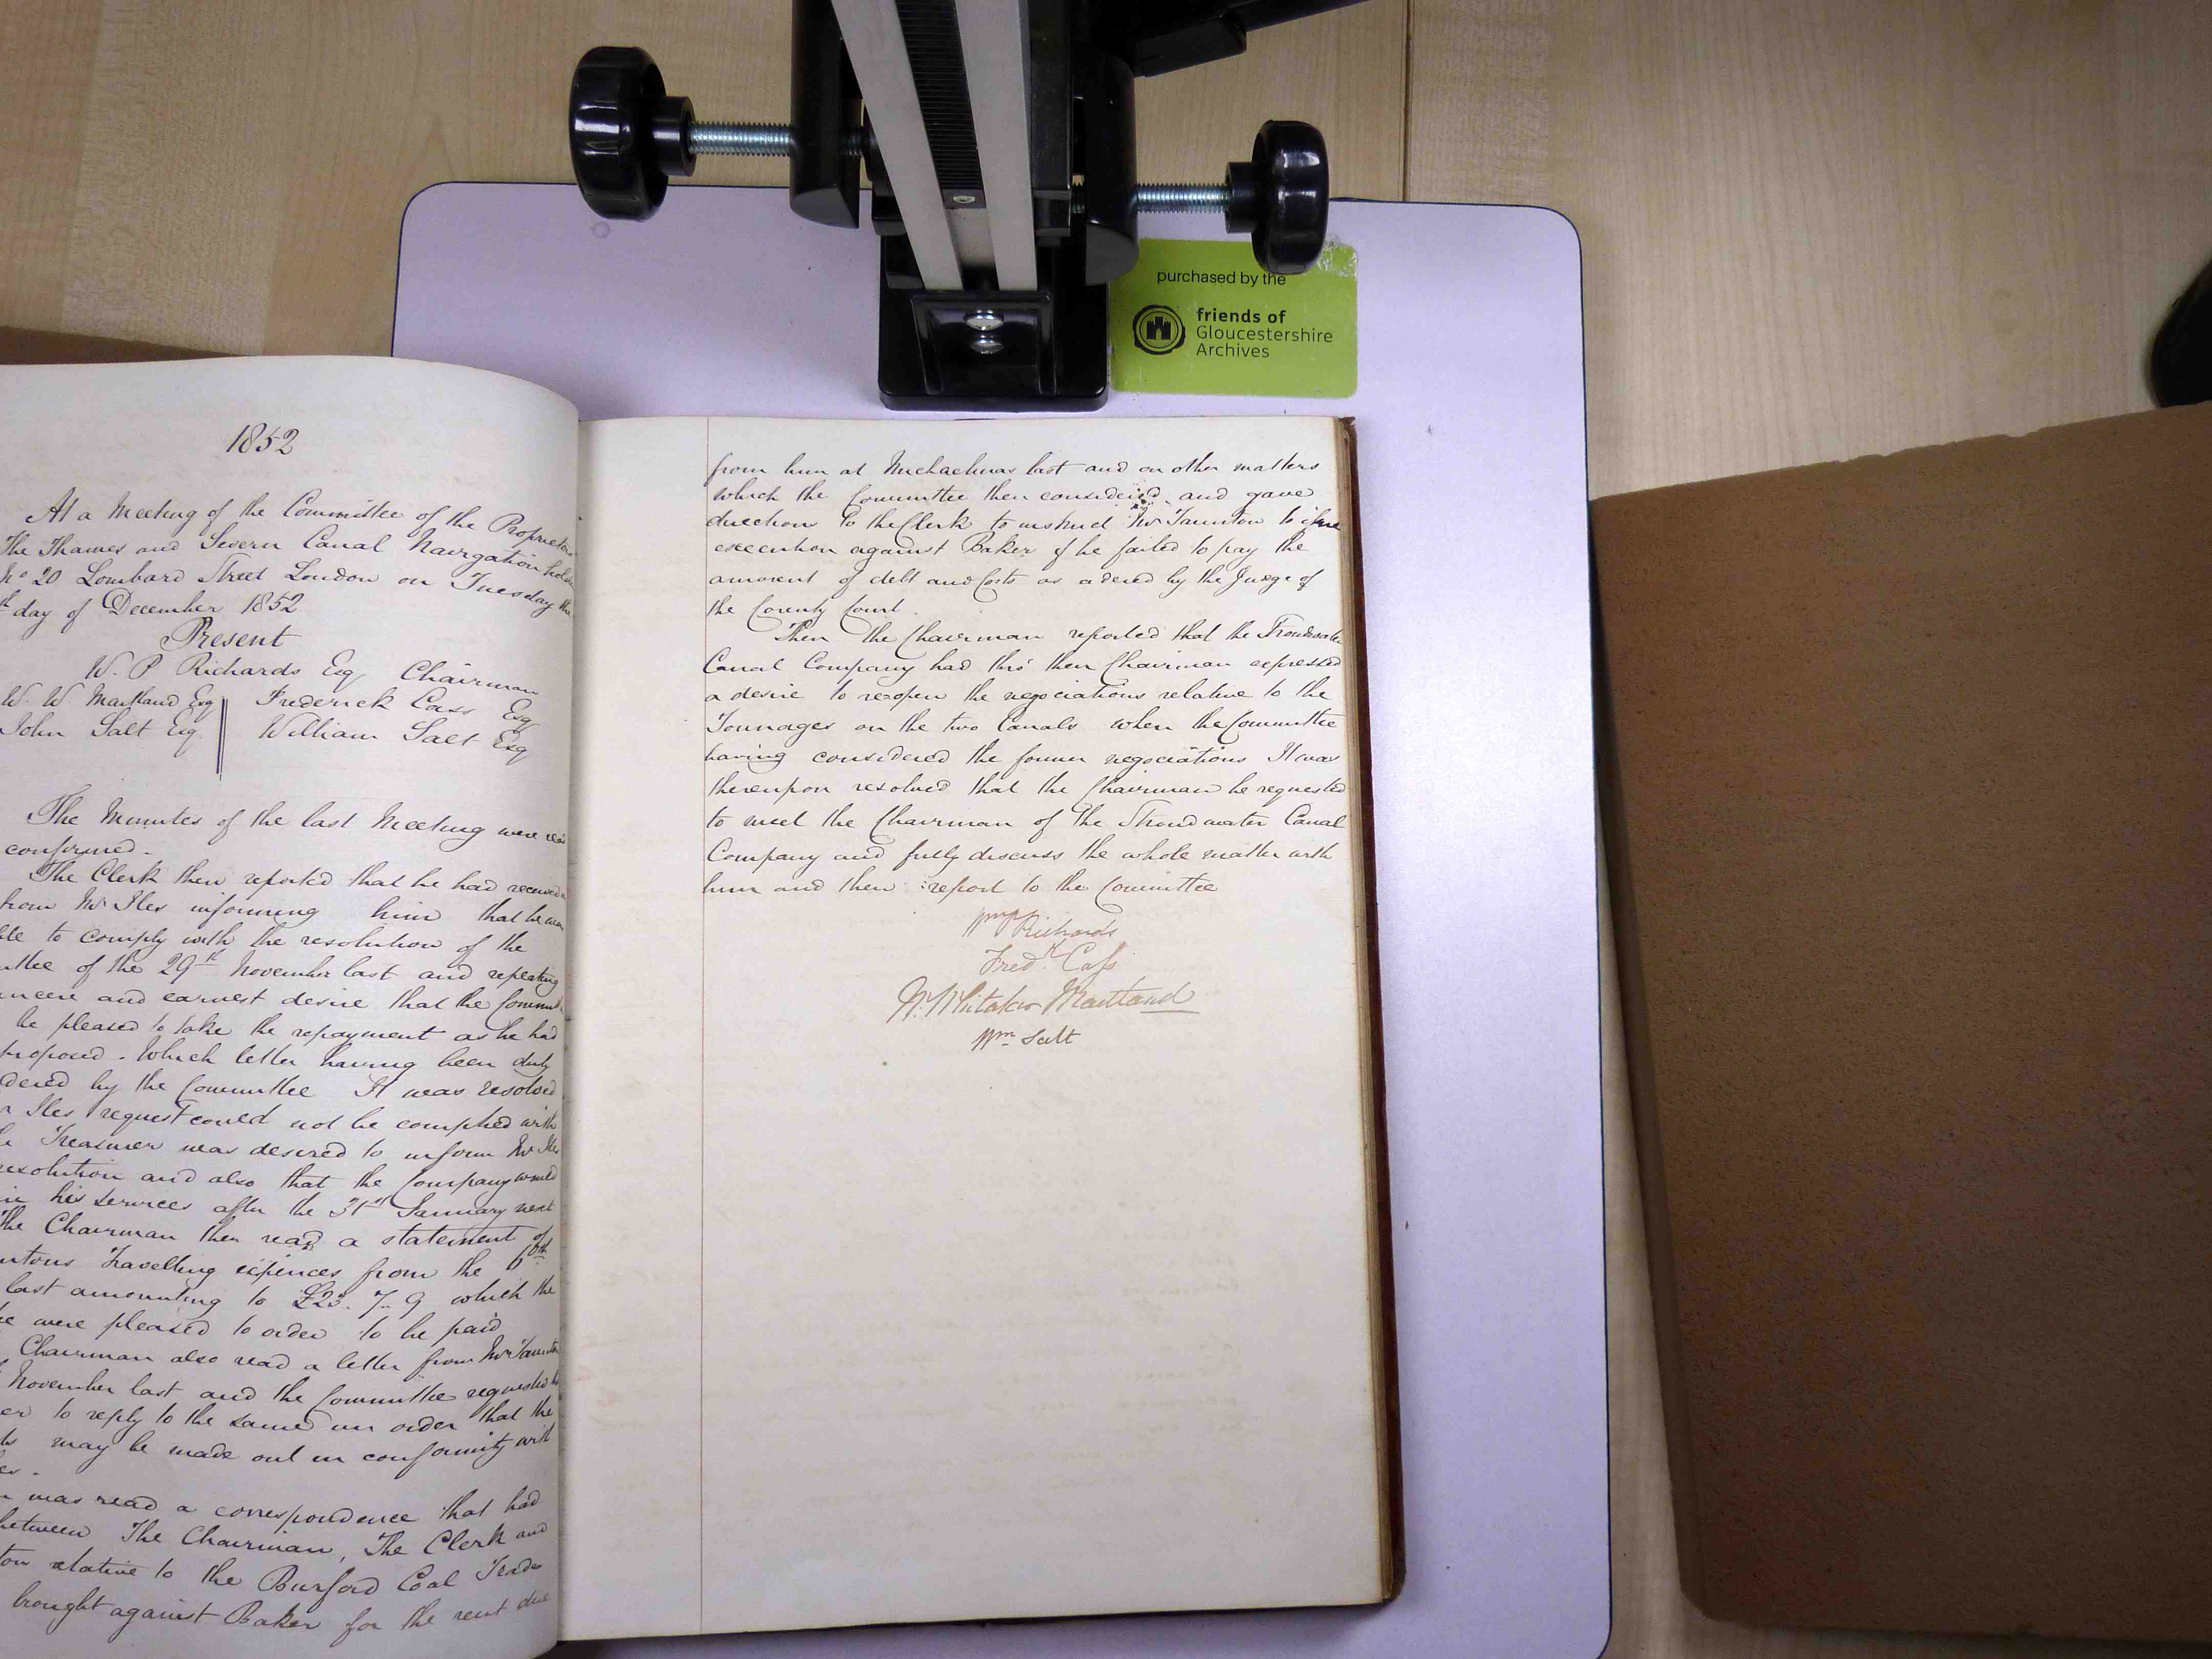 purchased by the
friends of
Gloucestershire
Archives
1852
At a Meeting of the Committee of the Proprietors
The Thames and Severn Canal Navigation
No 20 Lombard Street London on Tuesday the
th day of December 1852
Present
W. P Richards Esq Chairman
W. W Maitland Esq Frederick Cass Esq
John Salt Esq William Salt Esq
The Minutes of the last Meeting were read
confirmed.
The Clerk then reported that he had received
from Mr Iles informing him that he was
ble to comply with the resolution of the
ittee of the 29th November last and repeating
incere and earnest desire that the Committ
be pleased to take the repayment as he had
proposed. Which letter having been duly
dered by the Committee It was resolved
r Iles request could not be complied with
Treasurer was desired to inform Mr Iles
resolution and also that the Company would
his services after the 31st January next
The Chairman then read a statement of
untons Travelling expences from the 6th
last amounting to £23. 7. 9 which the
ee were pleased to order to be paid
Chairman also read a letter from Mr Taunton
November last and the Committee requested
er to reply to the same in order that the
ts may be made out in conformity with
es.
was read a correspondence that had
between The Chairman, The Clerk and
ton relative to the Burford Coal Trade
brought against Baker for the rent due
from him at Michaelmas last and on other matters
which the Committee then considered and gave
direction to the Clerk to instruct Mr Taunton to issue
execution against Baker if he failed to pay the
amount of debt and Costs as adered by the Judge of
the County Court.
Then the Chairman reported that the Stroudwater
Canal Company had thro' their Chairman expressed
a desire to reopen the negociations relative to the
Tonnages on the two Canals when the Committee
having considered the former negociations It was
thereupon resolved that the Chairman be requested
to meet the Chairman of the Stroudwater Canal
Company and fully discuss the whole matter with
him and then report to the Committee
Wm P Richards
Fredk Cass
W. Whitaker Maitland
Wm Salt